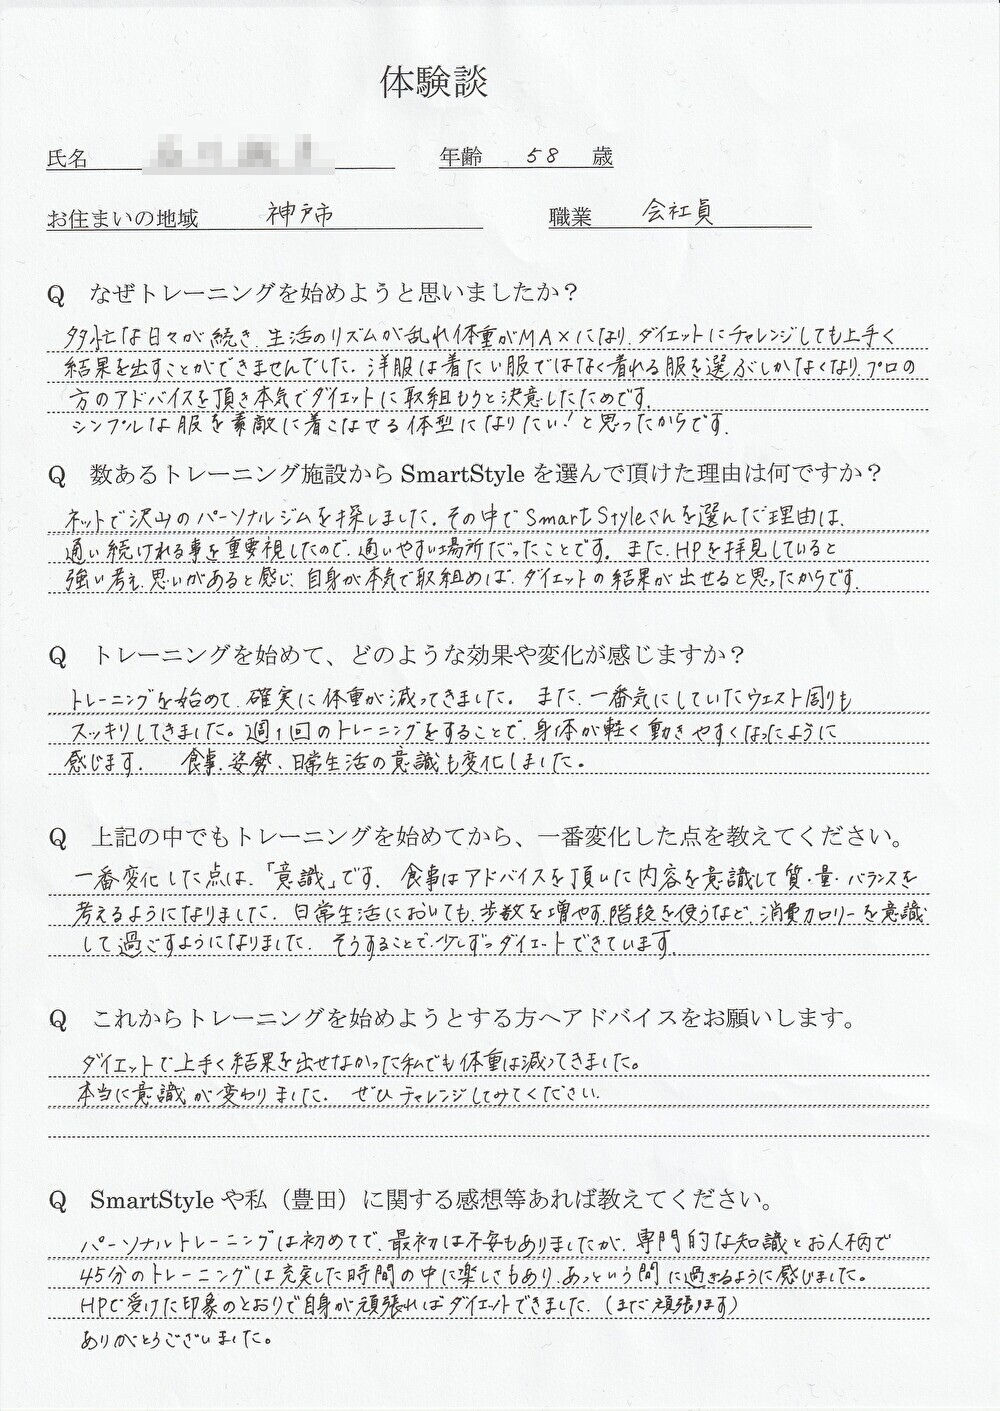 体験談
氏名
年齢 58 歳
お住まいの地域 神戸市
職業 会社員
Q なぜトレーニングを始めようと思いましたか？
多忙な日々が続き、生活のリズムが乱れ体重がMAXになり、ダイエットにチャレンジしても上手く
結果を出すことができませんでした。洋服は着たい服ではなく着れる服を選ぶしかなくなり、プロの
方のアドバイスを頂き本気でダイエットに取組もうと決意したためです。
シンプルな服を素敵に着こなせる体型になりたい！と思ったからです。
Q 数あるトレーニング施設から SmartStyle を選んで頂けた理由は何ですか？
ネットで沢山のパーソナルジムを探しました。その中でSmartStyleさんを選んだ理由は、
通い続けれる事を重要視したので、通いやすい場所だったことです。また、HPを拝見していると
強い考え、思いがあると感じ、自身が本気で取組めば、ダイエットの結果が出せると思ったからです。
Q トレーニングを始めて、どのような効果や変化が感じますか？
トレーニングを始めて、確実に体重が減ってきました。また、一番気にしていたウエスト周りも
スッキリしてきました。週1回のトレーニングをすることで、身体が軽く動きやすくなったように
感じます。 食事、姿勢、日常生活の意識も変化しました。
Q 上記の中でもトレーニングを始めてから、一番変化した点を教えてください。
一番変化した点は、「意識」です。食事はアドバイスを頂いた内容を意識して質・量・バランスを
考えるようになりました。日常生活においても、歩数を増やす、階段を使うなど、消費カロリーを意識
して過ごすようになりました。そうすることで、少しずつダイエットできています。
Q これからトレーニングを始めようとする方へアドバイスをお願いします。
ダイエットで上手く結果を出せなかった私でも体重は減ってきました。
本当に意識が変わりました。ぜひチャレンジしてみてください。
Q SmartStyle や私（豊田）に関する感想等あれば教えてください。
パーソナルトレーニングは初めてで、最初は不安もありましたが、専門的な知識とお人柄で
45分のトレーニングは充実した時間の中に楽しさもあり、あっという間に過ぎるように感じました。
HPで受けた印象のとおりで自身が頑張ればダイエットできました。（まだ頑張ります）
ありがとうございました。